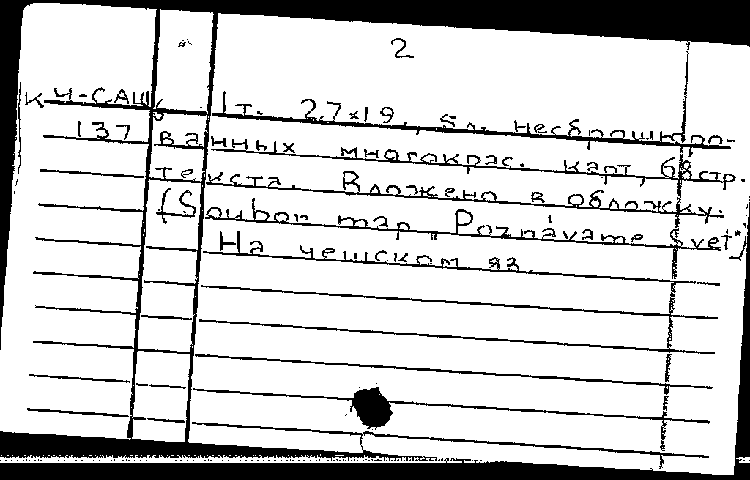 2
К Ч-САШ 1т. 27x19., 5л. несброшюро-
137 ванных многокрас. карт, 68 стр.
текста. Вложено в обложку.
(Soubor map „Poznáváme Svet")
На чешском яз.